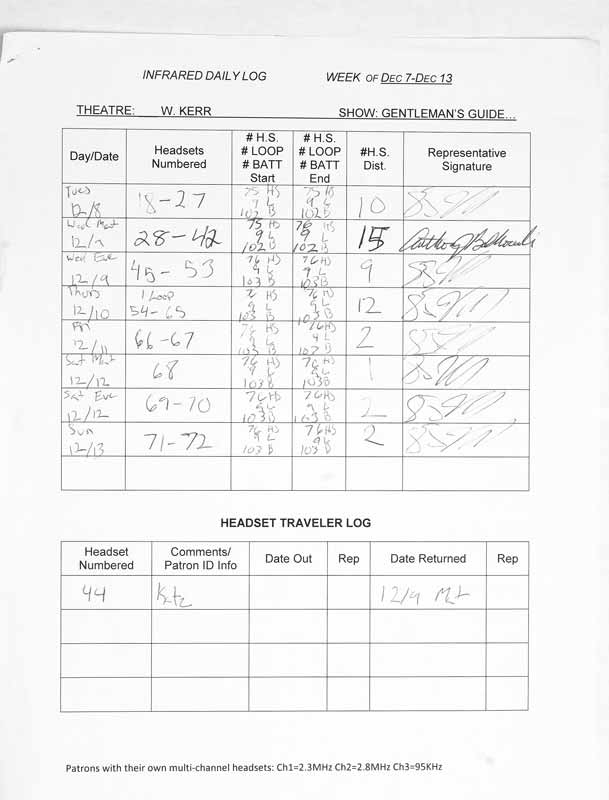 INFRARED DAILY LOG WEEK OF DEC 7-DEC 13
THEATRE: W. KERR SHOW: GENTLEMAN'S GUIDE...
Day/Date Headsets Numbered # H.S. # LOOP # BATT Start # H.S. # LOOP # BATT End #H.S. Dist. Representative Signature
Tues 12/8 18-27 75 HS 9 L 102 B 75 HS 9 L 102 B 10
Wed Mat 12/9 28-42 75 HS 9 L 102 B 76 HS 9 102 B 15
Wed Eve 12/9 45-53 76 HS 9 L 103 B 76 HS 9 L 103 B 9
Thurs 12/10 1 Loop 54-65 76 HS 9 L 103 B 76 HS 9 L 103 B 12
Fri 12/11 66-67 76 HS 9 L 103 B 76 HS 9 L 2
Sat Mat 12/12 68 76 HS 9 L 103 B 76 HS 9 L 103 B 1
Sat Eve 12/12 69-70 76 HS 9 L 103 B 76 HS 9 L 103 B 2
Sun 12/13 71-72 76 HS 9 L 103 B 76 HS 9 L 103 B 2
HEADSET TRAVELER LOG
Headset Numbered Comments/ Patron ID Info Date Out Rep Date Returned Rep
44 Katz 12/9 Mat
Patrons with their own multi-channel headsets: Ch1=2.3MHz Ch2=2.8MHz Ch3=95KHz